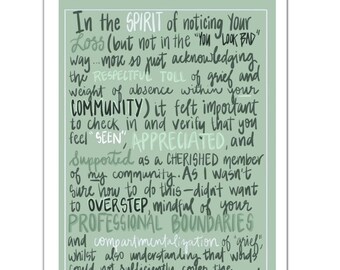 In the SPIRIT of noticing Your
Loss (but not in the "YOU LOOK BAD"
way... more so just acknowledging
the RESPECTFUL TOLL of grief and
weight of absence within your
COMMUNITY) it felt important
to check in and verify that you
feel "SEEN", APPRECIATED, and
Supported as a CHERISHED member
of my community. As I wasn't
sure how to do this—didn't want
to OVERSTEP, mindful of your
PROFESSIONAL BOUNDARIES
and compartmentalization of "grief",
whilst also understanding that words
could not sufficiently cover the